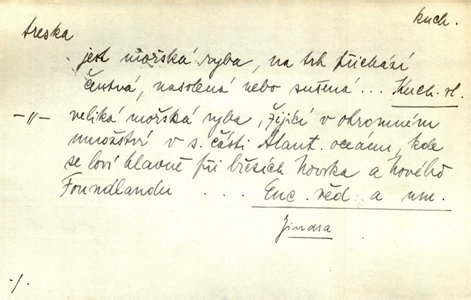 kuch.
treska
jest mořská ryba, na trh přichází
čerstvá, nasolená nebo sušená... Kuch. vl.
-"- veliká mořská ryba, žijící v ohromném
množství v s. části Atlant. oceánu, kde
se loví hlavně při březích Norska a Nového
Foundlandu .... Enc. věd. a um.
Jindra
-/.